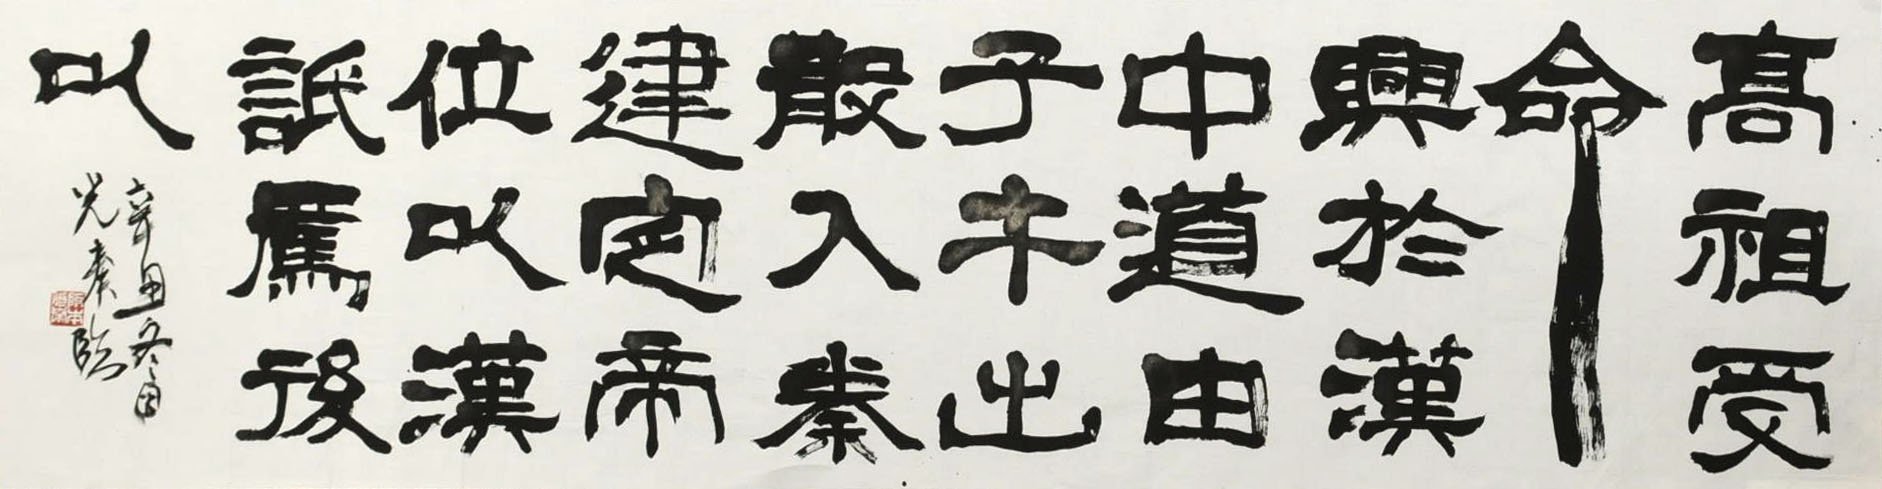 高祖受
命
興於漢
中道由
子午出
散入秦
建定帝
位以漢
詆焉後
以
辛丑冬日
光臨